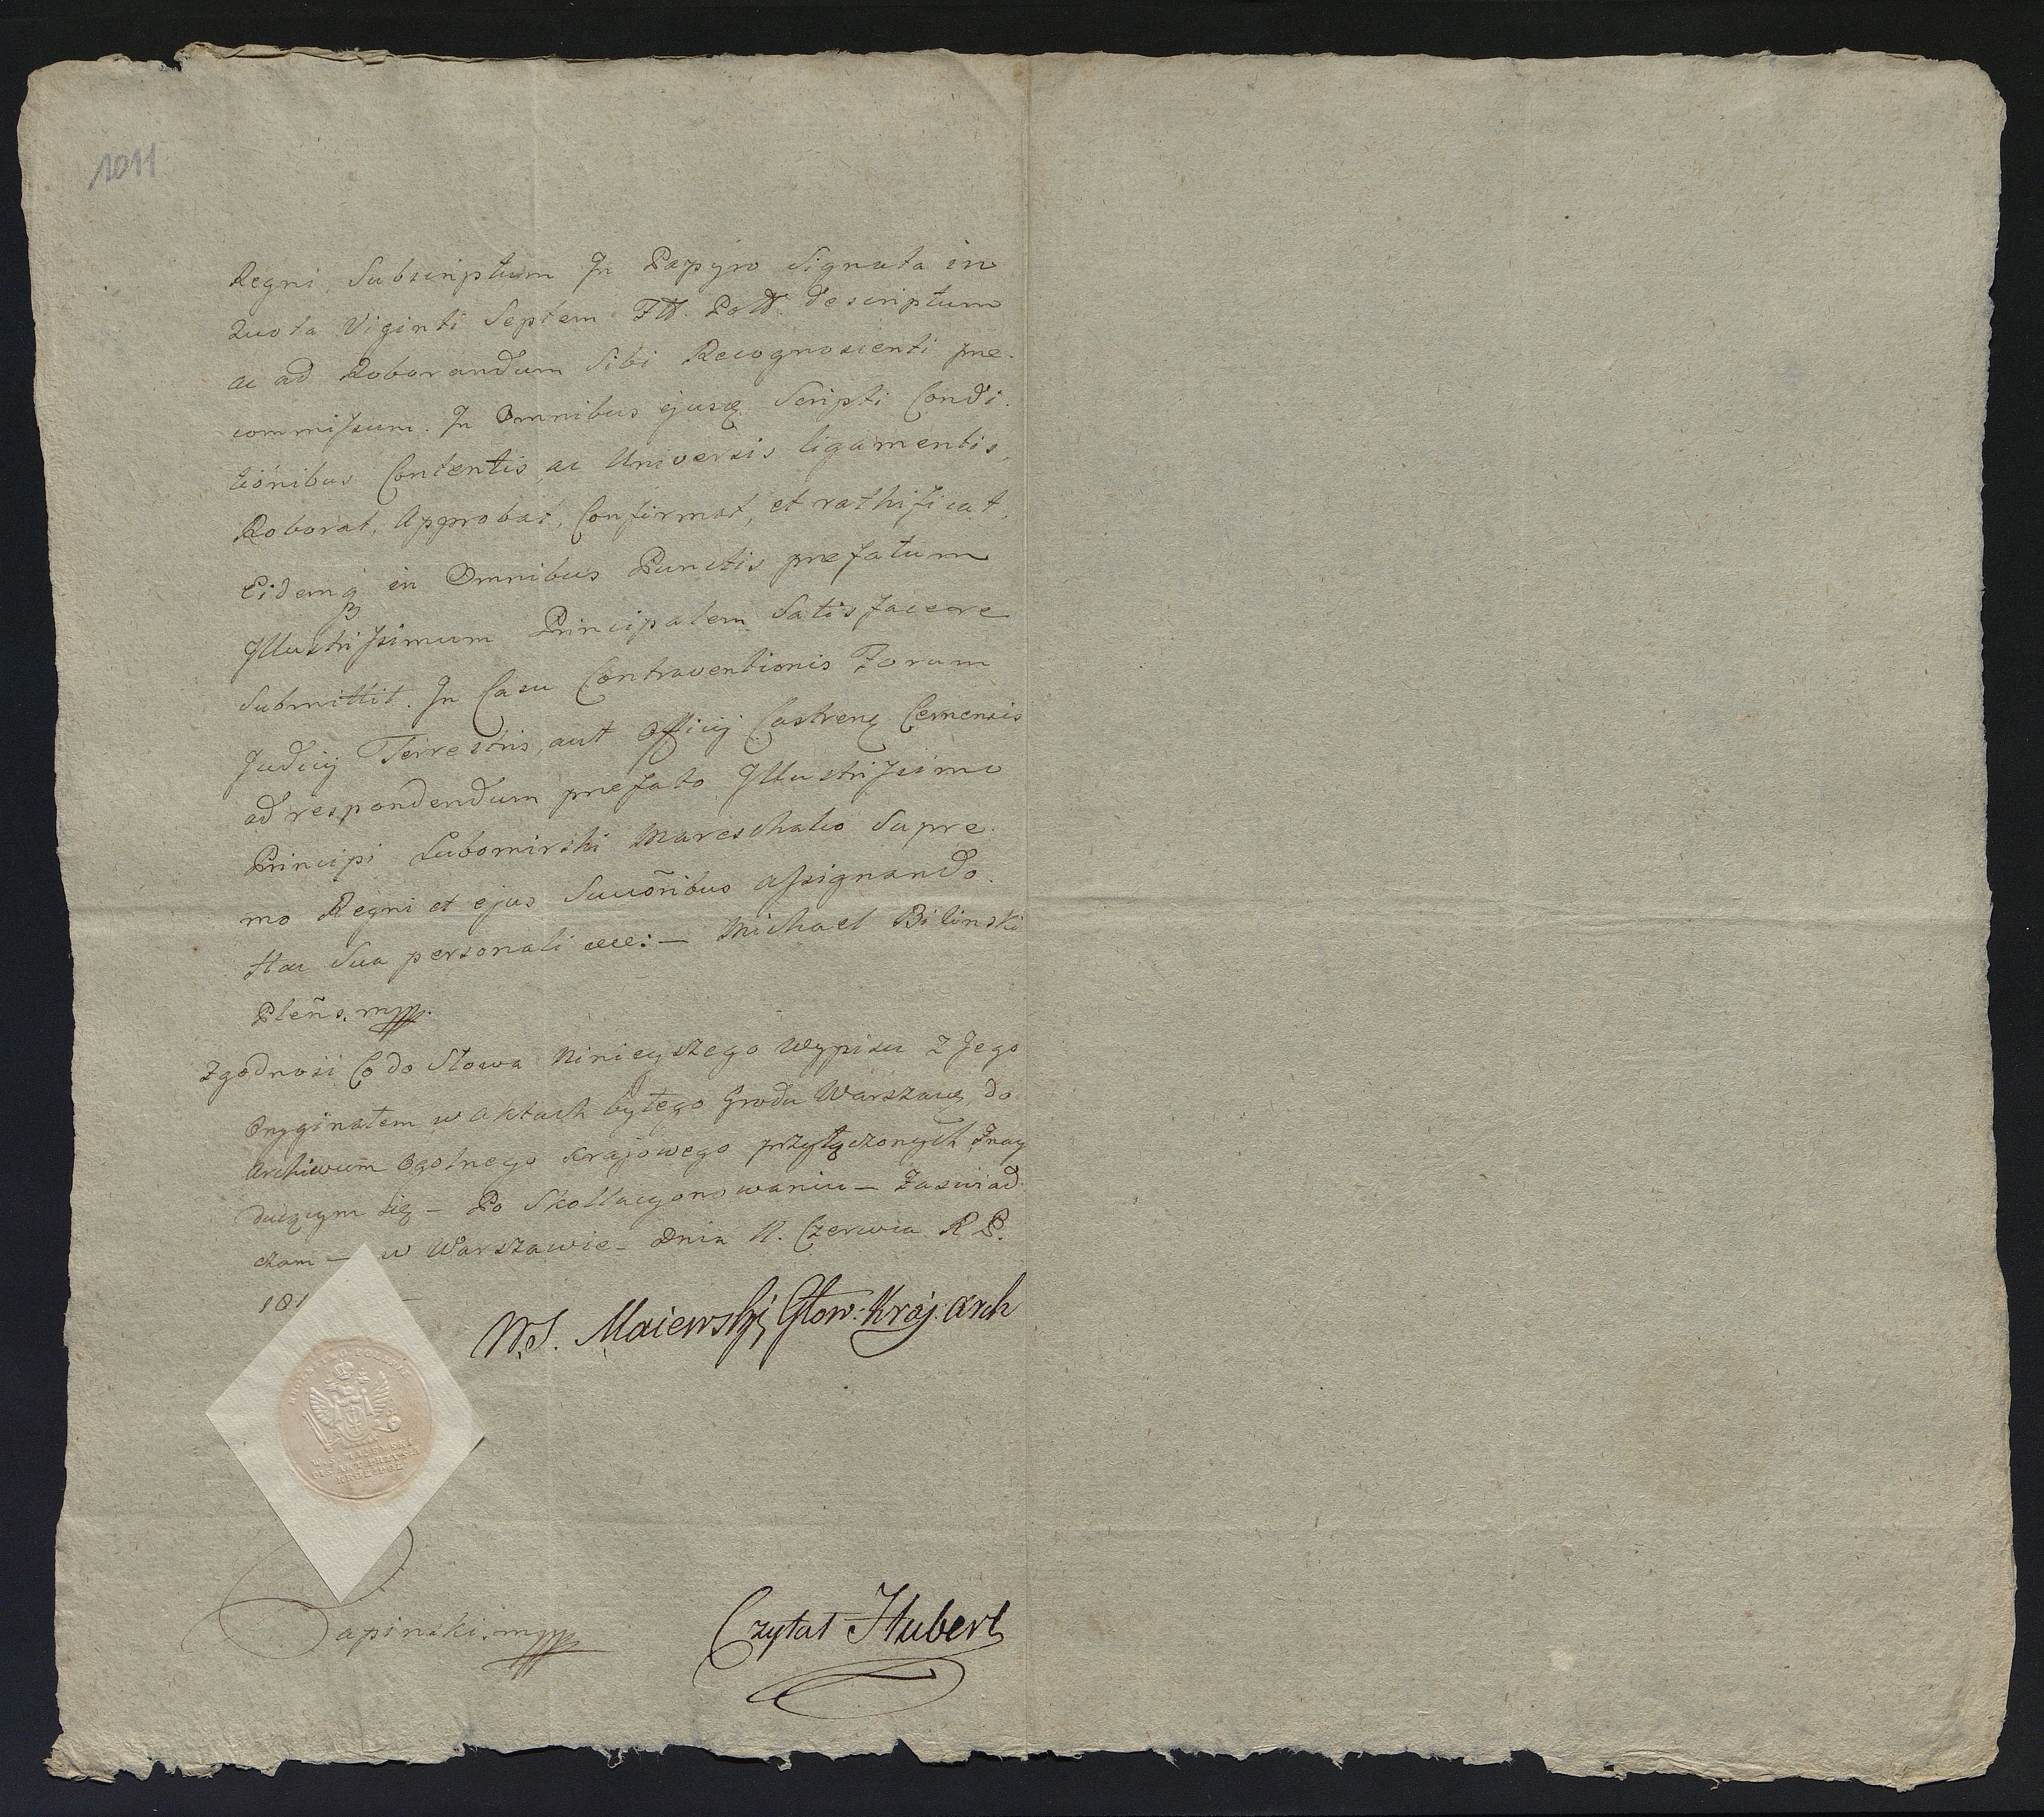 1011
Regni, Subscriptum In Papyro Signata in
Quota Viginti Septem Ftt. Pott. descriptum
ac ad Roborandum Sibi Recognoscenti præ-
commissum. In Omnibus ejusq Scripti Condi-
tionibus Contentis, ac Universis ligamentis,
Roborat, Approbat, Confirmat, et rathificat,
Eidemq in Omnibus Punctis præfatum
Illustrissimum Principalem Satisfacere
Submittit. In Casu Contraventionis Forum
Judicij Terrestris, aut Officij Castren Cernensis
ad respondendum præfato Illustrissimo
Principi Lubomirski Mareschalco Supre-
mo Regni et ejus Succoribus assignando.
Hac Sua personali — Michael Bilinski
Pleñs. mppp.
Zgodność Co do Słowa Ninieyszego Wypisu z Jego
Oryginałem w Aktach byłego Grodu Warszaw, do
Archiwum Ogolnego Krajowego przyłączonych Znay
duiącym się — Po Skollacyonowaniu — Zaswiad
cham — w Warszawie — Dnia 11. Czerwca R. P.
181
W. S. Maiewski, Głow: Kraj: Arch
W. S. MAIEWSKI
PISARZ PRZYSIĘ
KROL POL
Sapinski. mppp
Czytał Hubert